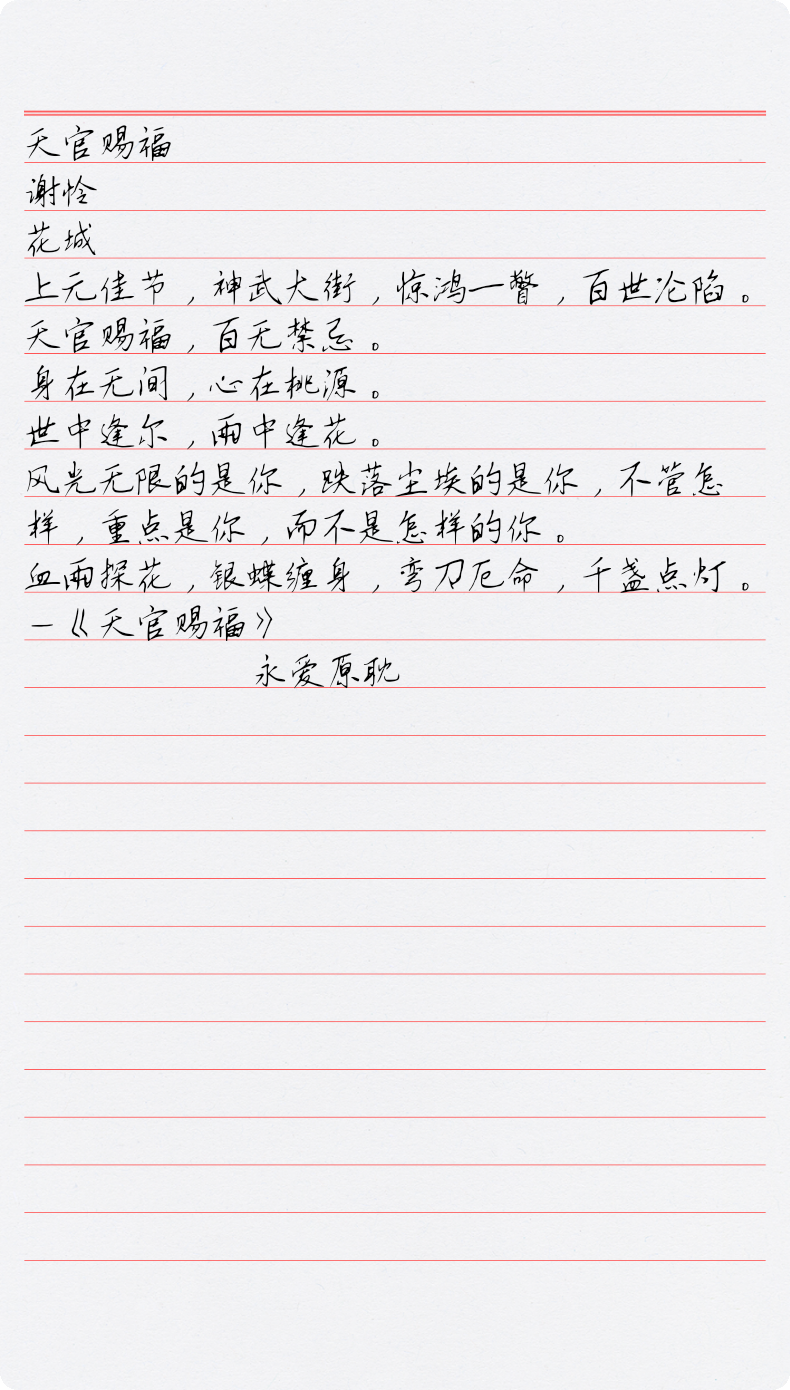 天官赐福
谢怜
花城
上元佳节，神武大街，惊鸿一瞥，百世沦陷。
天官赐福，百无禁忌。
身在无间，心在桃源。
世中逢尔，雨中逢花。
风光无限的是你，跌落尘埃的是你，不管怎
样，重点是你，而不是怎样的你。
血雨探花，银蝶缠身，弯刀厄命，千盏点灯。
—《天官赐福》
永爱原耽